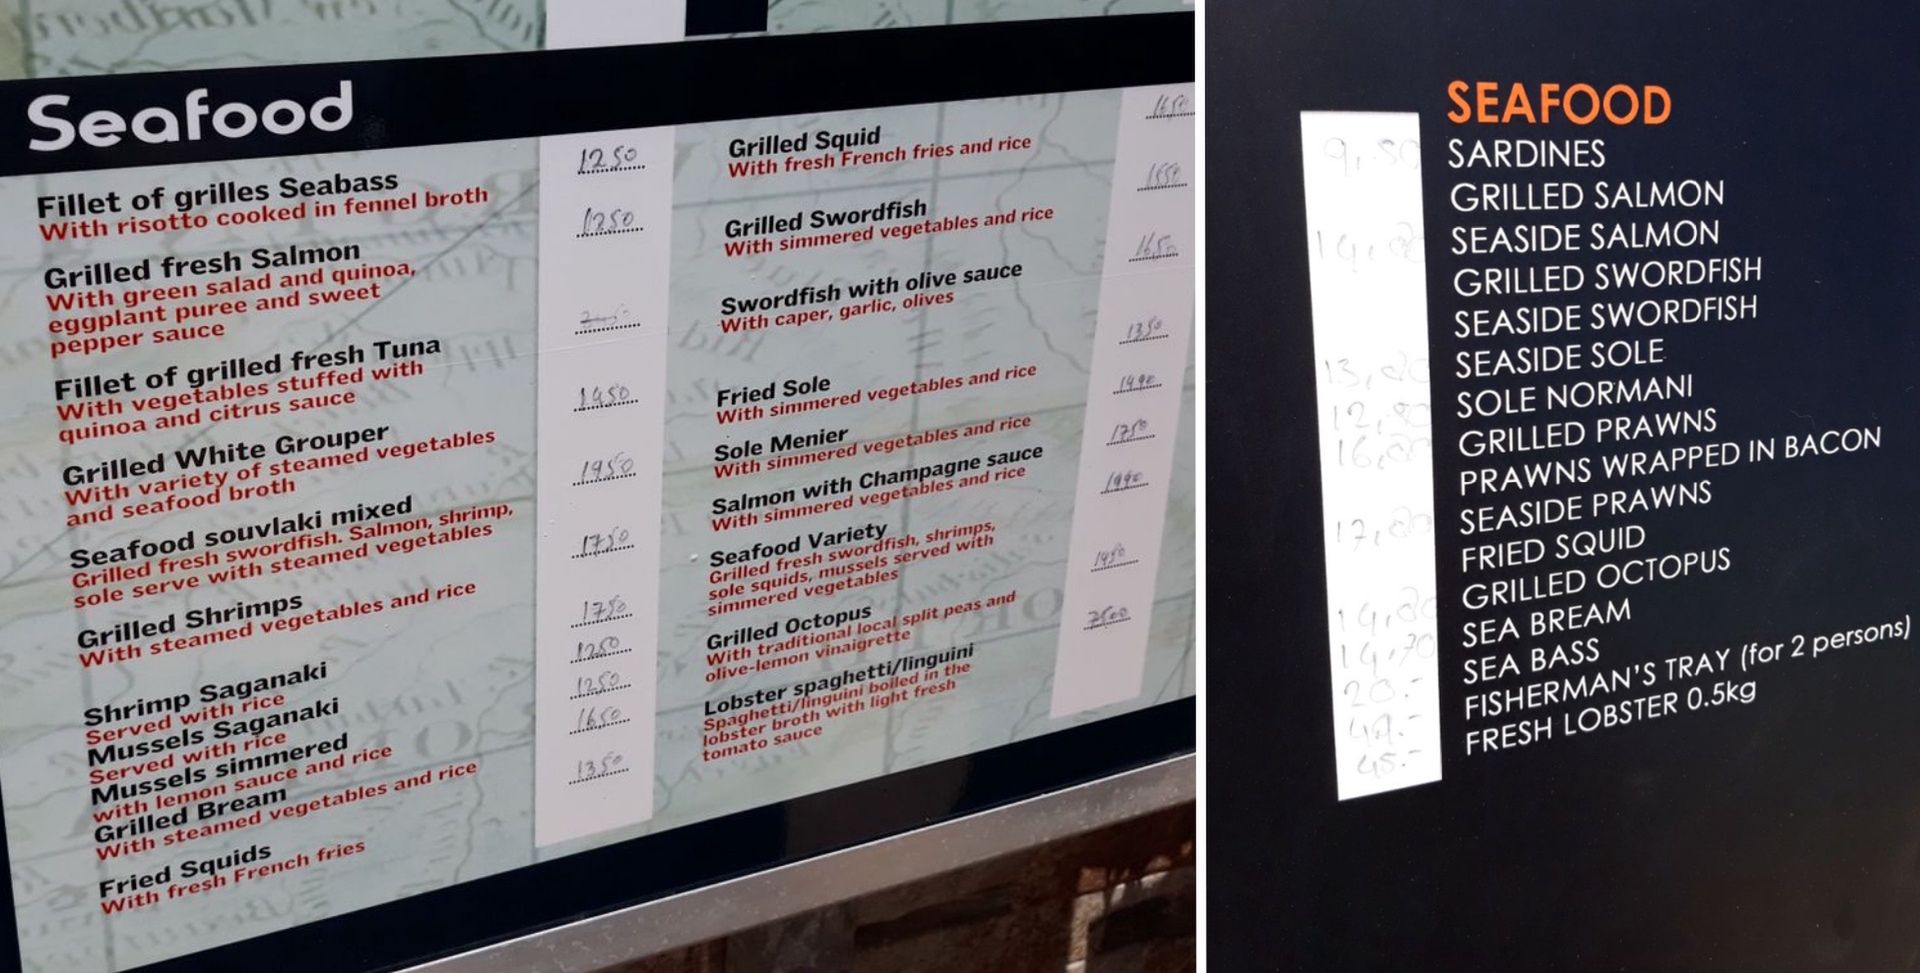 Seafood
Fillet of grilles Seabass
1250
With risotto cooked in fennel broth
Grilled fresh Salmon
1250
With green salad and quinoa,
eggplant puree and sweet
pepper sauce
Fillet of grilled fresh Tuna
With vegetables stuffed with
quinoa and citrus sauce
Grilled White Grouper
1450
With variety of steamed vegetables
and seafood broth
Seafood souvlaki mixed
1950
Grilled fresh swordfish. Salmon, shrimp,
sole serve with steamed vegetables
Grilled Shrimps
1750
With steamed vegetables and rice
Shrimp Saganaki
1750
Served with rice
Mussels Saganaki
1250
Served with rice
Mussels simmered
1250
with lemon sauce and rice
Grilled Bream
1650
With steamed vegetables and rice
Fried Squids
1350
With fresh French fries
Grilled Squid
1650
With fresh French fries and rice
Grilled Swordfish
1550
With simmered vegetables and rice
Swordfish with olive sauce
1650
With caper, garlic, olives
Fried Sole
1350
With simmered vegetables and rice
Sole Menier
1490
With simmered vegetables and rice
Salmon with Champagne sauce
1750
With simmered vegetables and rice
Seafood Variety
1990
Grilled fresh swordfish, shrimps,
sole squids, mussels served with
simmered vegetables
Grilled Octopus
1450
With traditional local split peas and
olive-lemon vinaigrette
Lobster spaghetti/linguini
7500
Spaghetti/linguini boiled in the
lobster broth with light fresh
tomato sauce
SEAFOOD
9,80 SARDINES
GRILLED SALMON
14,80 SEASIDE SALMON
GRILLED SWORDFISH
SEASIDE SWORDFISH
13,80 SEASIDE SOLE
12,80 SOLE NORMANI
16,80 GRILLED PRAWNS
PRAWNS WRAPPED IN BACON
17,80 SEASIDE PRAWNS
FRIED SQUID
14,80 GRILLED OCTOPUS
14,70 SEA BREAM
20.- SEA BASS
49.- FISHERMAN'S TRAY (for 2 persons)
45.- FRESH LOBSTER 0.5kg